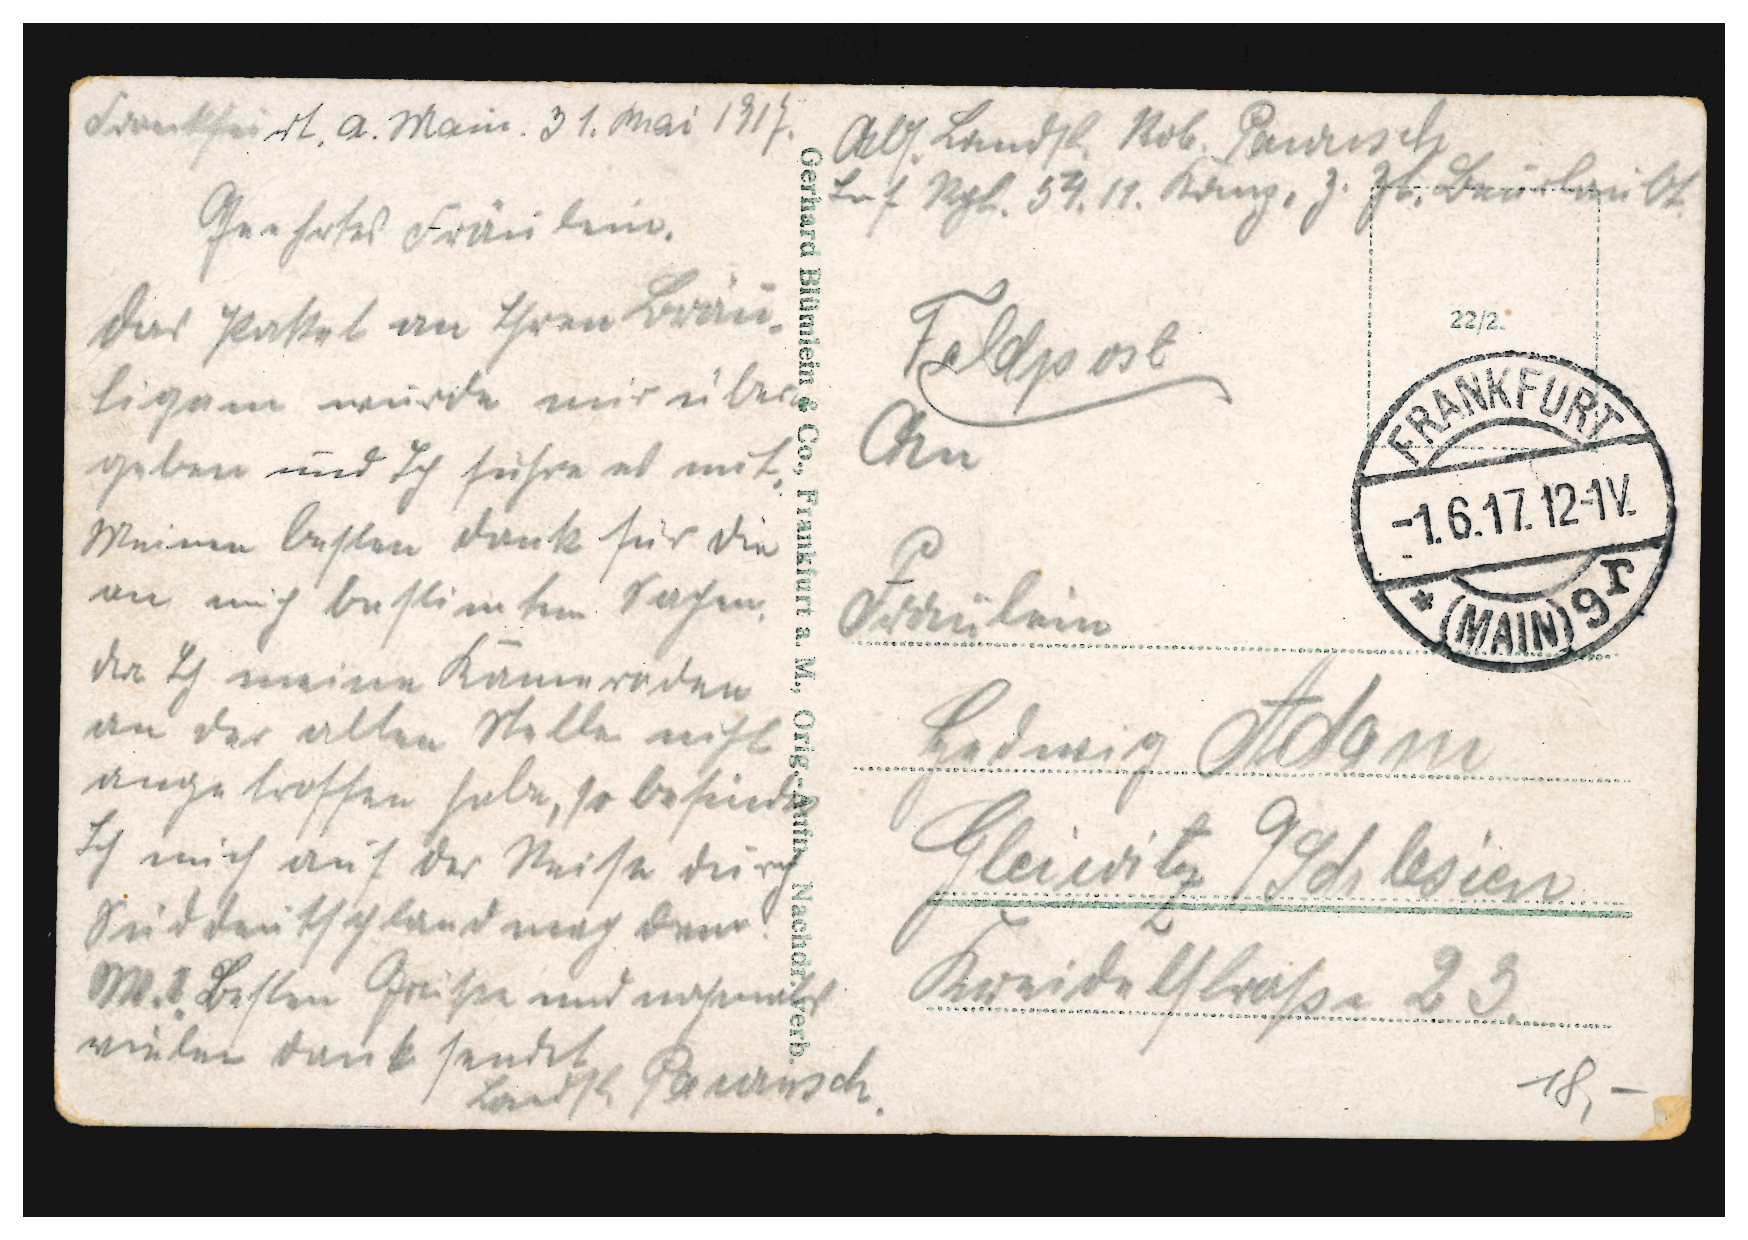 Frankfurt. a. Main. 31. Mai 1917.
Geehrtes Fräulein.
Das Paket an Ihren Bräu-
tigam wurde mir über
geben und Ich führe es mit.
Meinen besten dank für die
an mich bestimten Sachen.
da Ich meine Kameraden
an der alten Stelle nicht
angetroffen habe, so befinde
Ich mich auf der Reise durch
Süddeutschland nach dem
M. Besten Grüße und nochmals
vielen dank sendet
Landst.
Gerhard Blümlein & Co., Frankfurt a. M., Orig.-Aufn. Nachdr. verb.
Abs. Landst. Rob.
Inf Rgt. 54. 11. Komp. z. Zt. Beurlaubt.
Feldpost
An
Fräulein
Hedwig Adam
Gleiwitz Schlesien
Kreidelstraße 23.
22/2.
FRANKFURT
-1.6.17. 12-1V.
* (MAIN) 9 r
18,-